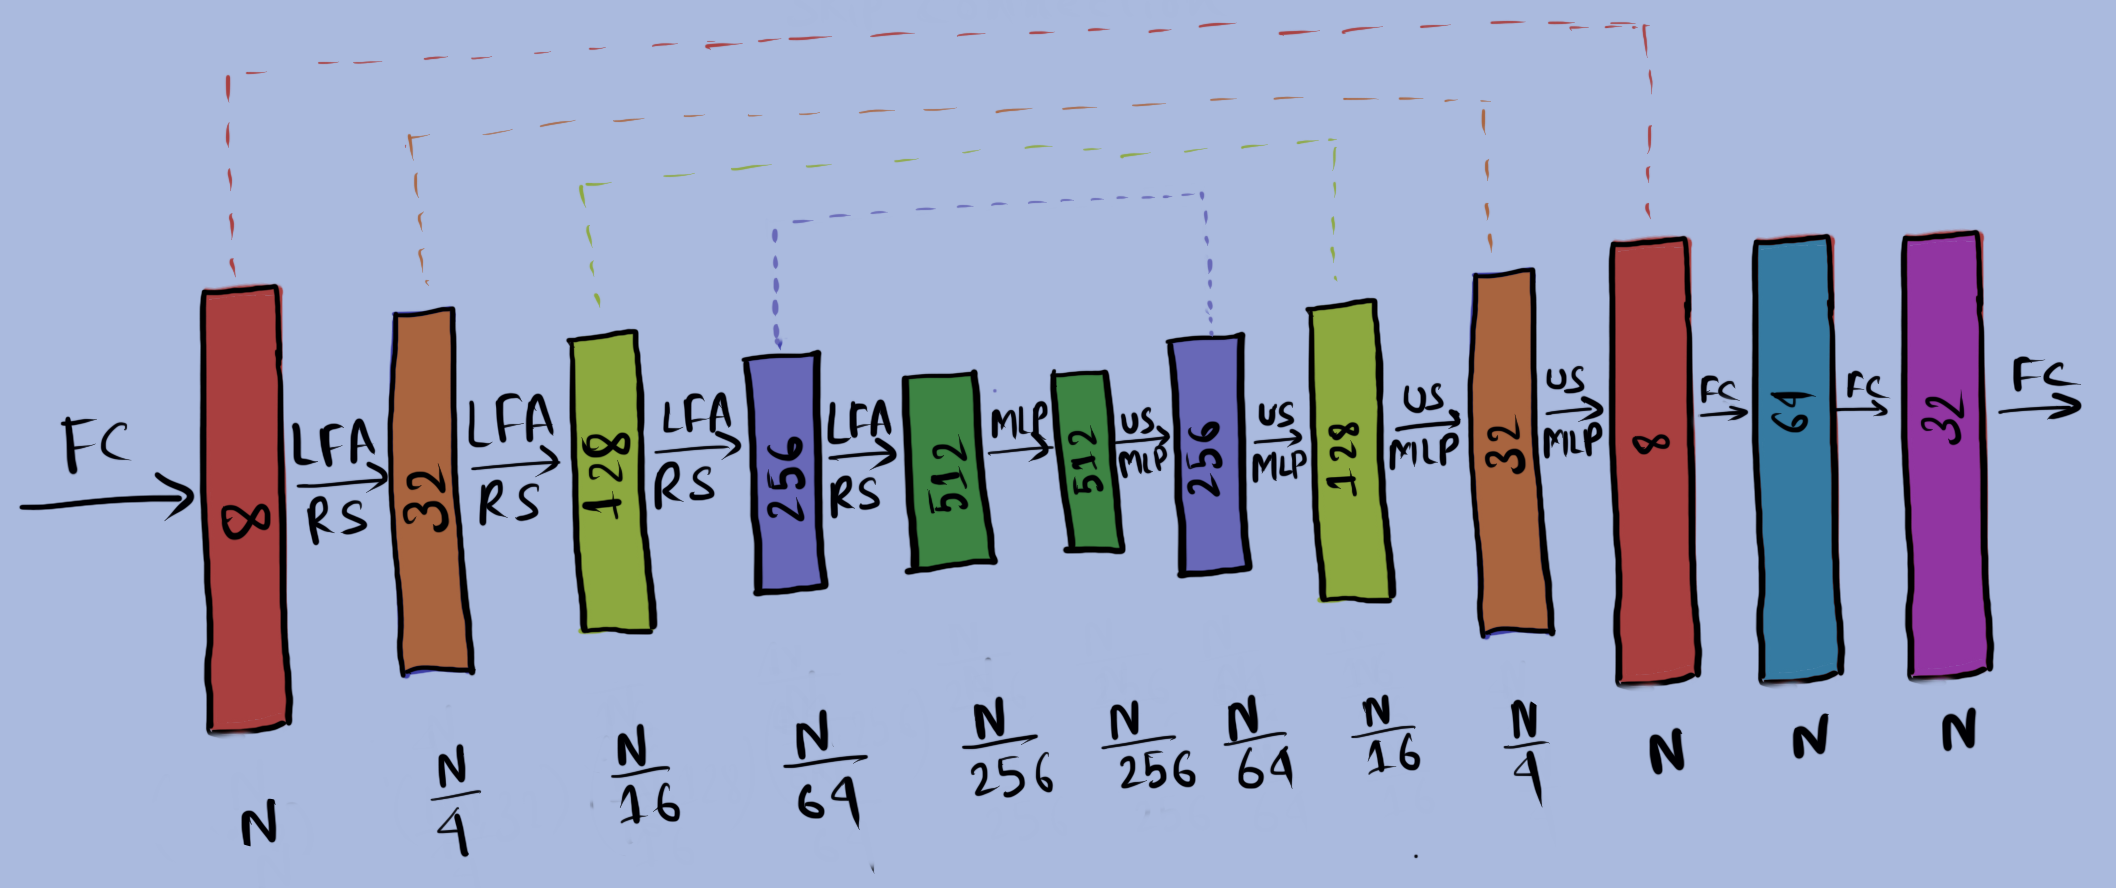 FC
8
LFA
RS
32
LFA
RS
128
LFA
RS
256
LFA
RS
512
MLP
512
US
MLP
256
US
MLP
128
US
MLP
32
US
MLP
8
FC
64
FC
32
FC
N
N
4
N
16
N
64
N
256
N
256
N
64
N
16
N
4
N
N
N